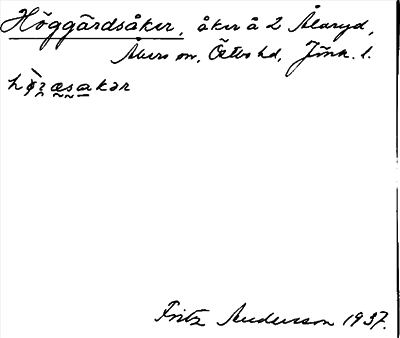 Höggärdsåker, åker å 2 Ålaryd,
Åkers sn, Östbo hd, Jönk. l.
Fritz Andersson 1937.